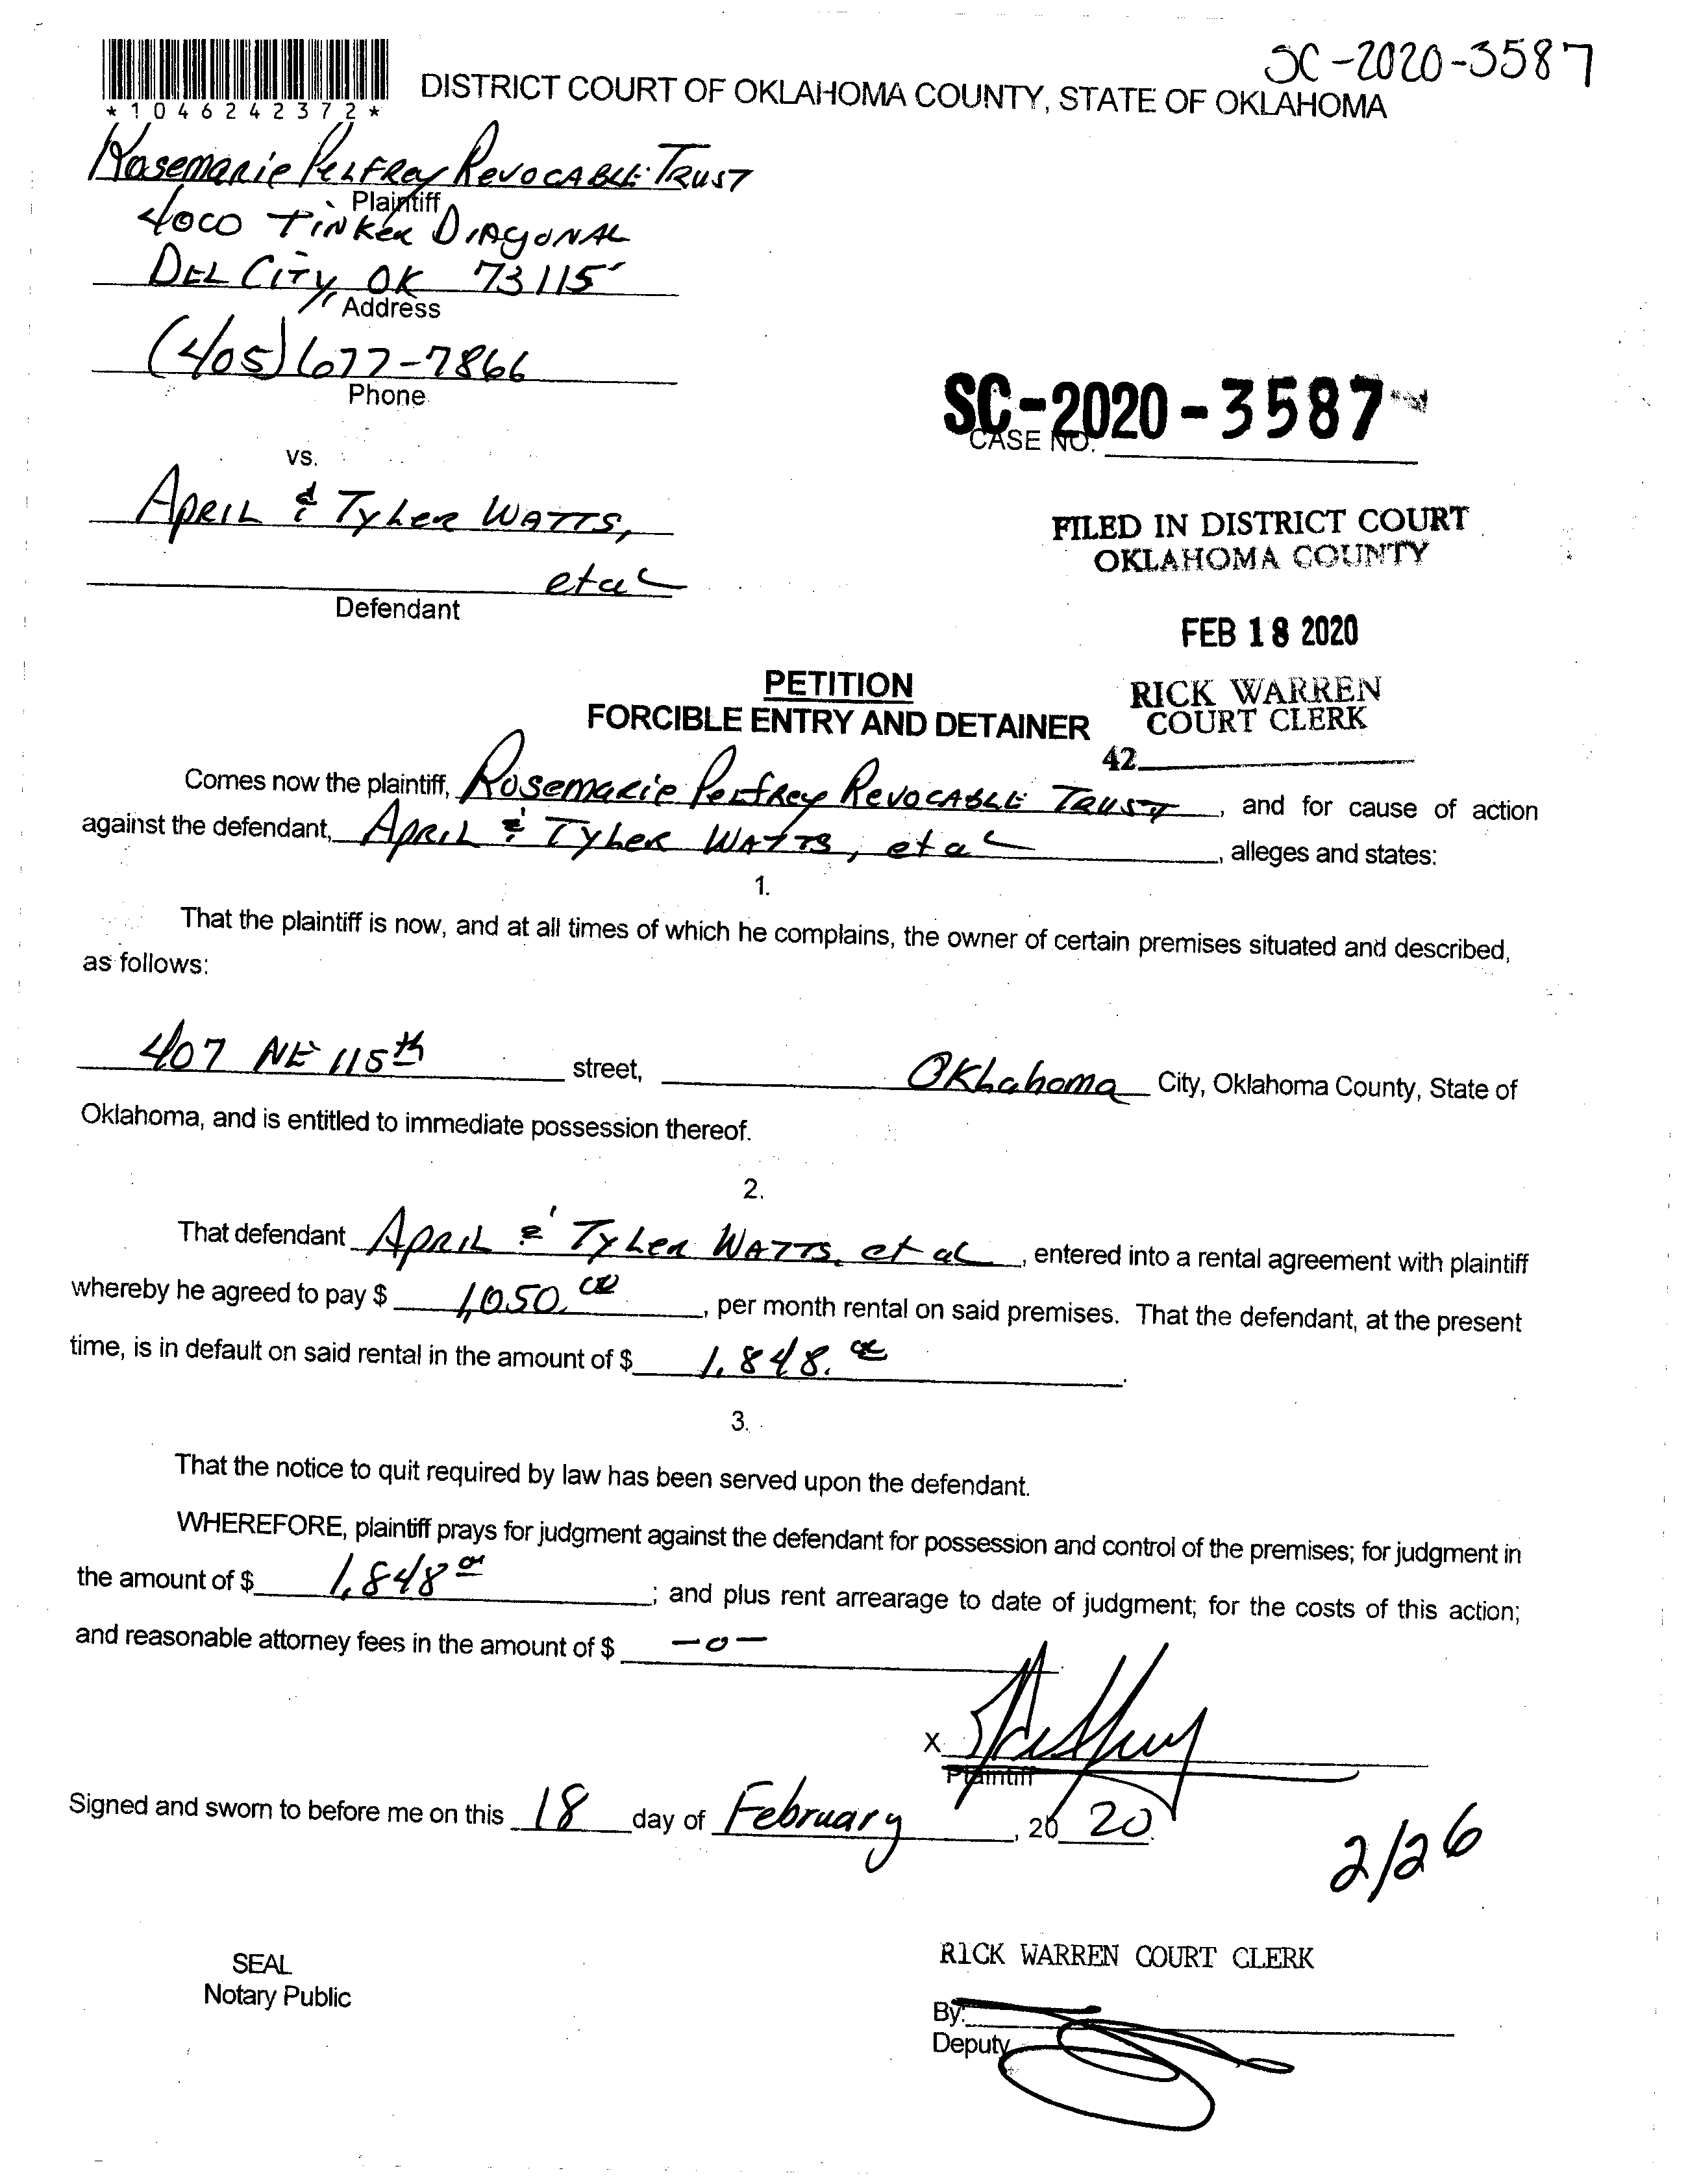 SC-2020-3587
*1046242372*
DISTRICT COURT OF OKLAHOMA COUNTY, STATE OF OKLAHOMA
Rosemarie Pelfrey Revocable Trust
Plaintiff
4000 Tinker Diagonal
Del City, OK 73115
Address
(405) 677-7866
Phone
SC-2020-3587
CASE NO.
vs.
April & Tyler Watts,
et al
Defendant
FILED IN DISTRICT COURT
OKLAHOMA COUNTY
FEB 18 2020
RICK WARREN
COURT CLERK
42
PETITION
FORCIBLE ENTRY AND DETAINER
Comes now the plaintiff, Rosemarie Pelfrey Revocable Trust, and for cause of action
against the defendant, April & Tyler Watts, et al, alleges and states:
1.
That the plaintiff is now, and at all times of which he complains, the owner of certain premises situated and described,
as follows:
407 NE 115th street, Oklahoma City, Oklahoma County, State of
Oklahoma, and is entitled to immediate possession thereof.
2.
That defendant April & Tyler Watts, et al, entered into a rental agreement with plaintiff
whereby he agreed to pay $ 1,050.00, per month rental on said premises. That the defendant, at the present
time, is in default on said rental in the amount of $ 1,848.00.
3.
That the notice to quit required by law has been served upon the defendant.
WHEREFORE, plaintiff prays for judgment against the defendant for possession and control of the premises; for judgment in
the amount of $ 1,848 00; and plus rent arrearage to date of judgment; for the costs of this action;
and reasonable attorney fees in the amount of $ -0-
X
Plaintiff
Signed and sworn to before me on this 18 day of February, 20 20.
2/26
SEAL
Notary Public
RICK WARREN COURT CLERK
By:
Deputy